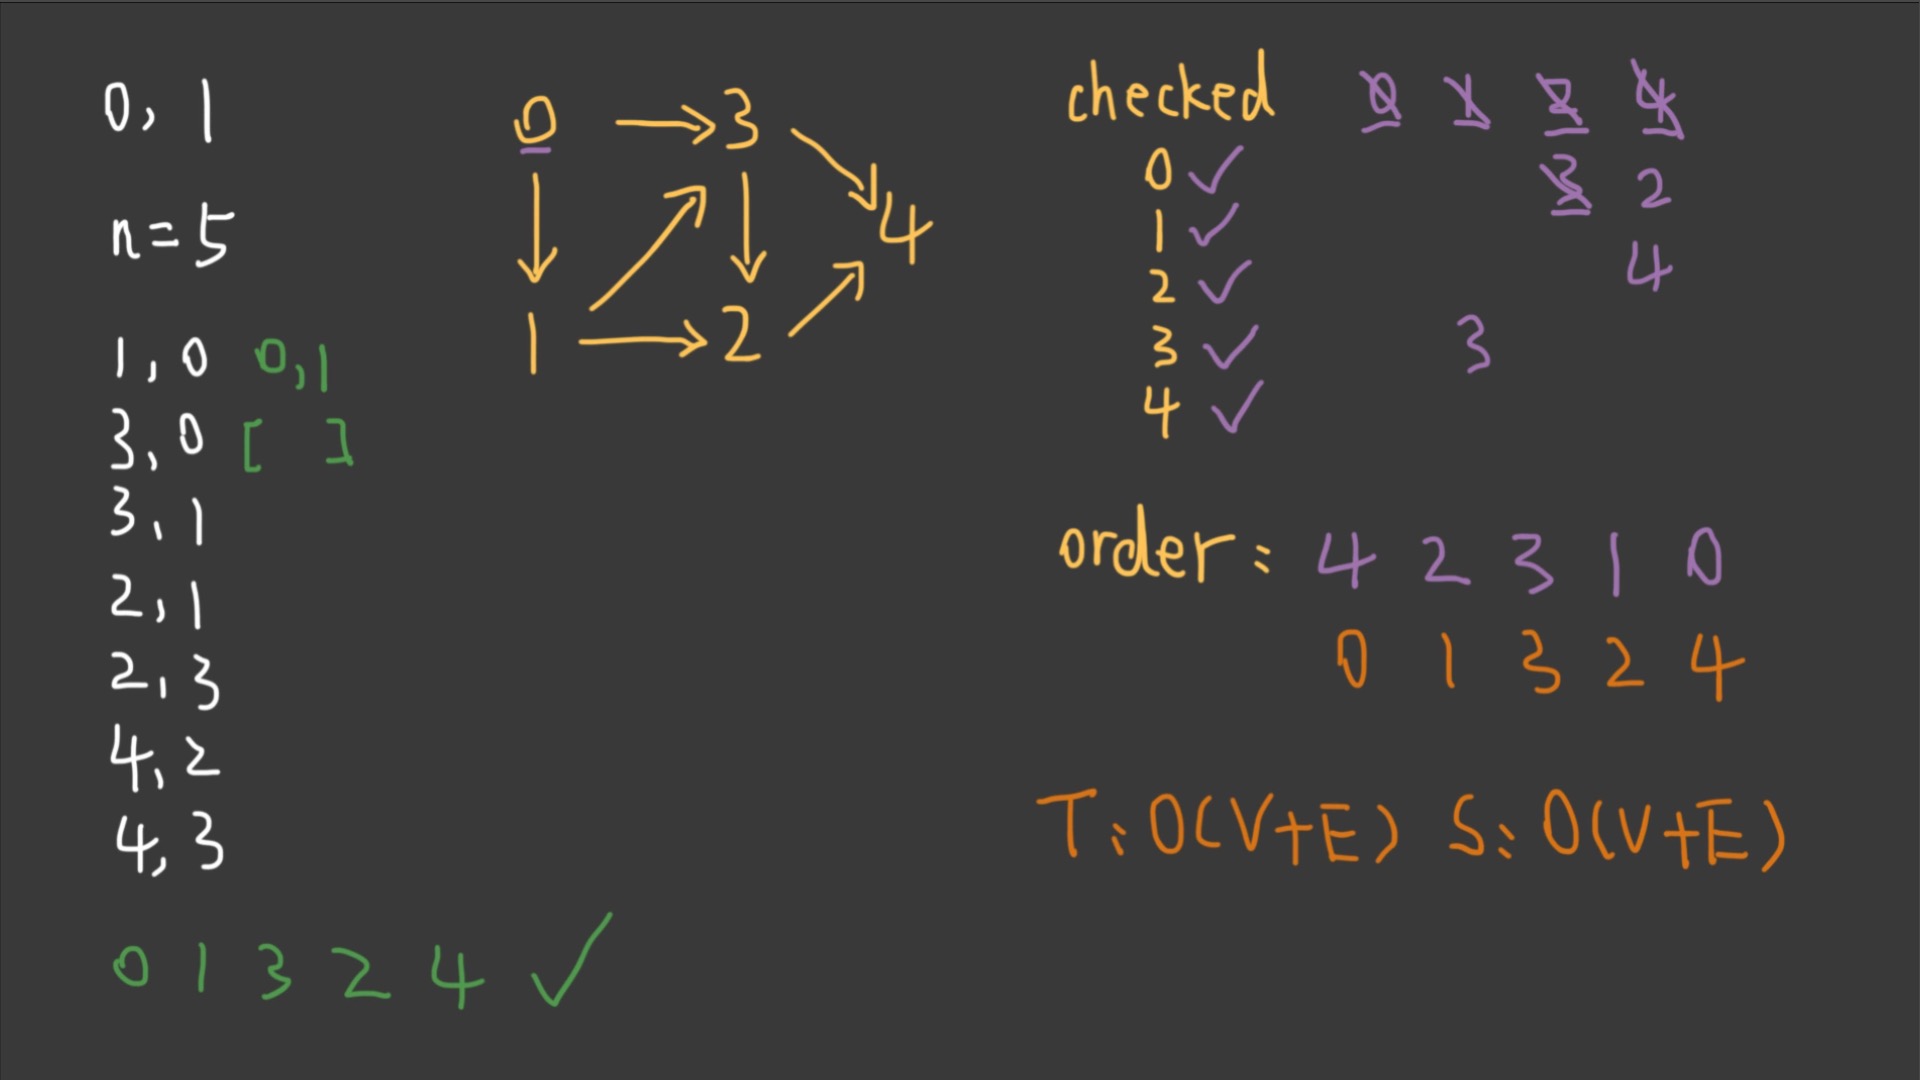 0, 1
n=5
1, 0 0, 1
3, 0 [ ]
3, 1
2, 1
2, 3
4, 2
4, 3
0 1 3 2 4 ✓
0 → 3
4
1 → 2
checked 0 1 2 4
0 ✓ 3 2
1 ✓
2 ✓ 4
3 ✓ 3
4 ✓
order: 4 2 3 1 0
0 1 3 2 4
T: O(V+E) S: O(V+E)